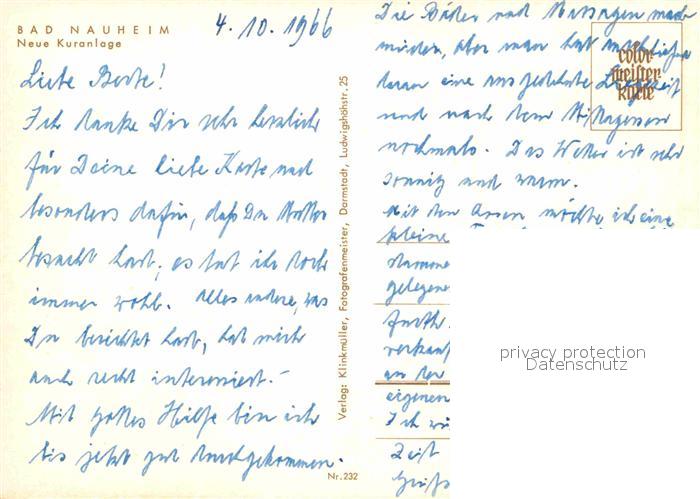 BAD NAUHEIM
Neue Kuranlage
4.10.1966
Liebe Berte!
Ich danke Dir sehr herzlich
für Deine liebe Karte und
besonders dafür, daß Du Mutter
besucht hast, es tut ihr doch
immer wohl. Alles andere, was
Du berichtet hast, hat mich
auch recht interessiert.-
Mit Gottes Hilfe bin ich
bis jetzt gut durchgekommen.
Verlag: Klinkmüller, Fotografenmeister, Darmstadt, Ludwigshöhstr. 25
Nr. 232
Die Bäder und Massagen mach
müde, aber man hat
daran eine ausgedehnte Liegezeit
und nach dem Mittagessen
nochmals. Das Wetter ist sehr
sonnig und warm.
Mit den Augen möchte ich eine
kleine
gelegene
verkauf
an der
eigenen
Ich
Zeit
color
meister
karte
privacy protection
Datenschutz